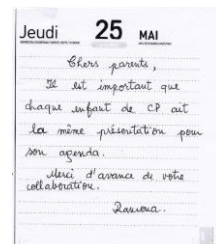 Jeudi 25 MAI
Chers parents,
Il est important que
chaque enfant de CP ait
la même présentation pour
son agenda.
Merci d'avance de votre
collaboration.
Ramona.